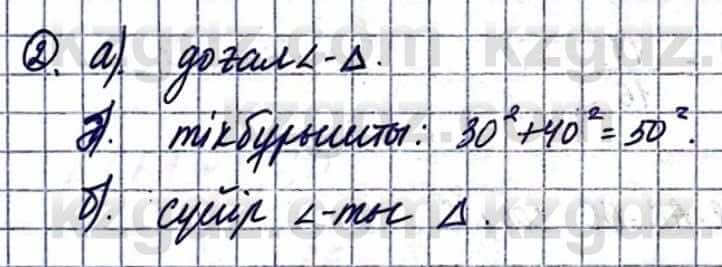 2. а). доғал ∠-Δ.
ә). тікбұрышты: 30²+40²=50².
б). сүйір ∠-тыс Δ.